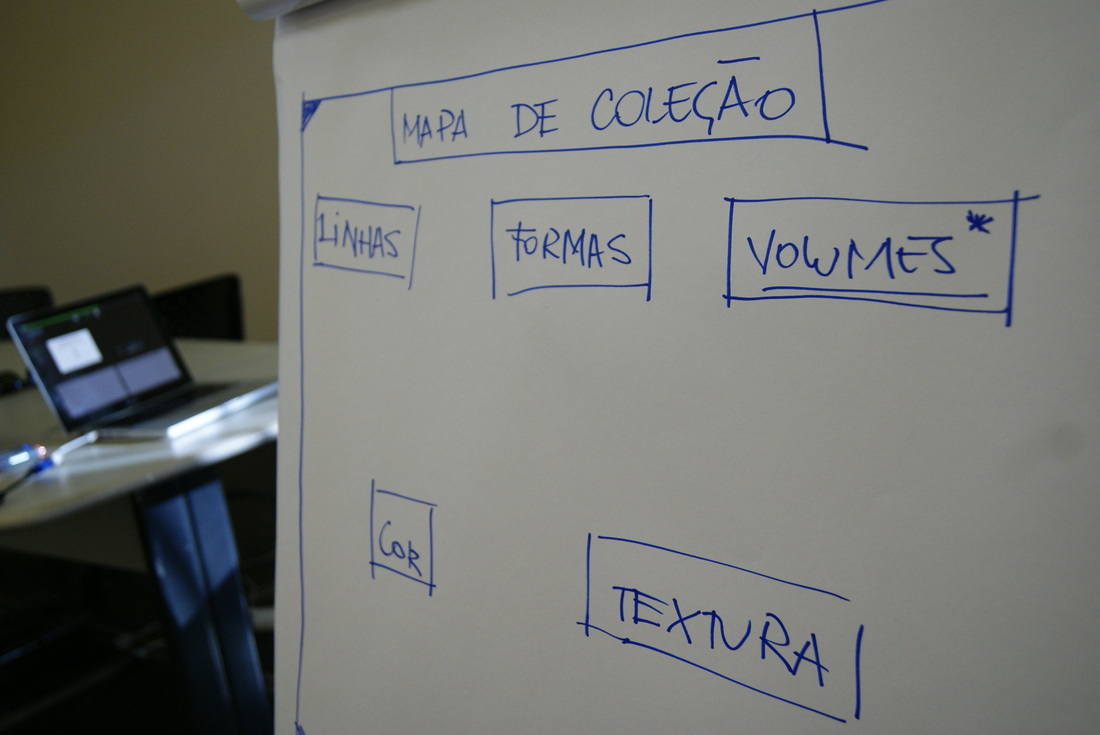 MAPA DE COLEÇÃO
LINHAS
FORMAS
VOLUMES*
COR
TEXTURA